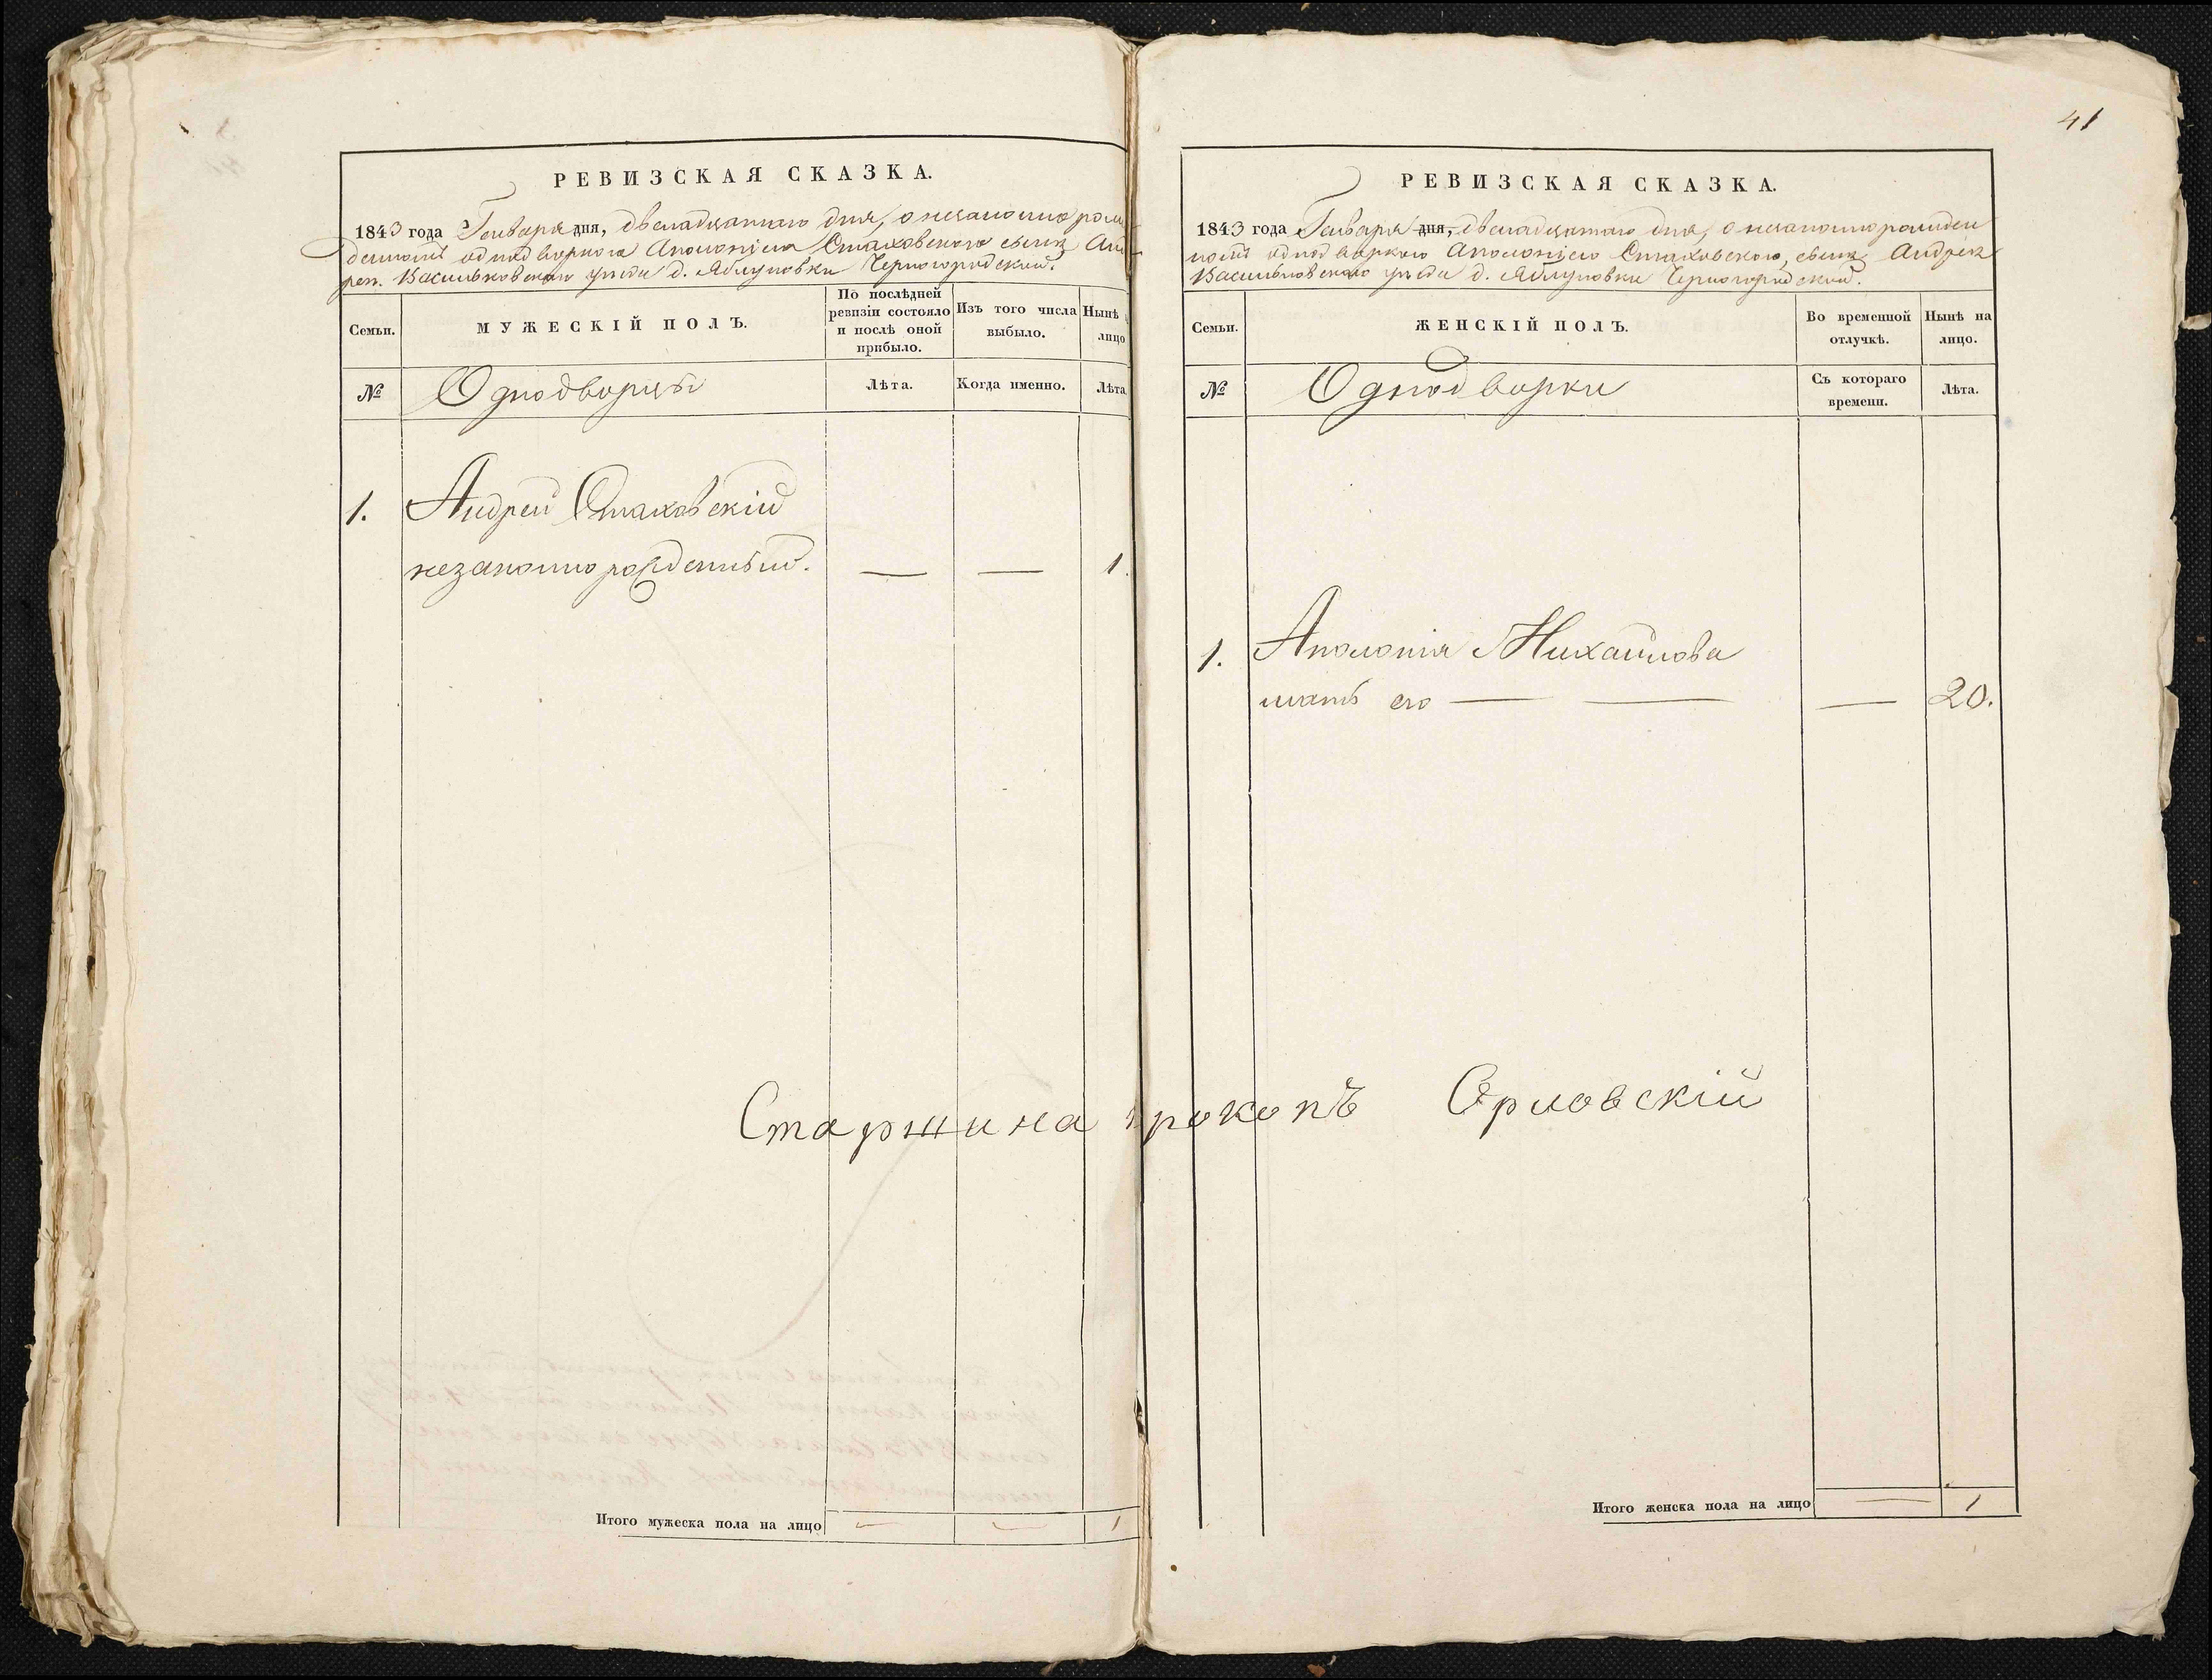 РЕВИЗСКАЯ СКАЗКА.
1843 года Генваря дня, двенадцатаго дня, о незаконнорож
денномъ однодворкою Аполонiею Стаховскою сынѣ Анд
реѣ. Васильковскаго уѣзда д. Яблуновки Черногородской.
Семьи.
МУЖЕСКІЙ ПОЛЪ.
По послѣдней
ревизіи состояло
и послѣ оной
прибыло.
Изъ того числа
выбыло.
Нынѣ
лицо
№
Однодворцы
Лѣта.
Когда именно.
Лѣта
1. Андрей Стаховскій
незаконнорожденный. — — 1.
Итого мужеска пола на лицо — — 1
41
РЕВИЗСКАЯ СКАЗКА.
1843 года Генваря дня, двенадцатаго дня, о незаконнорожден
номъ однодворкою Аполоніею Стаховскою, сынѣ Андреѣ
Васильковскаго уѣзда д. Яблуновки Черногородской.
Семьи.
ЖЕНСКІЙ ПОЛЪ.
Во временной
отлучкѣ.
Нынѣ на
лицо.
№
Однодворки
Съ котораго
времени.
Лѣта.
1. Аполонія Михайлова
мать его — — — 20.
Старшина Прокопъ Орловскій
Итого женска пола на лицо — 1